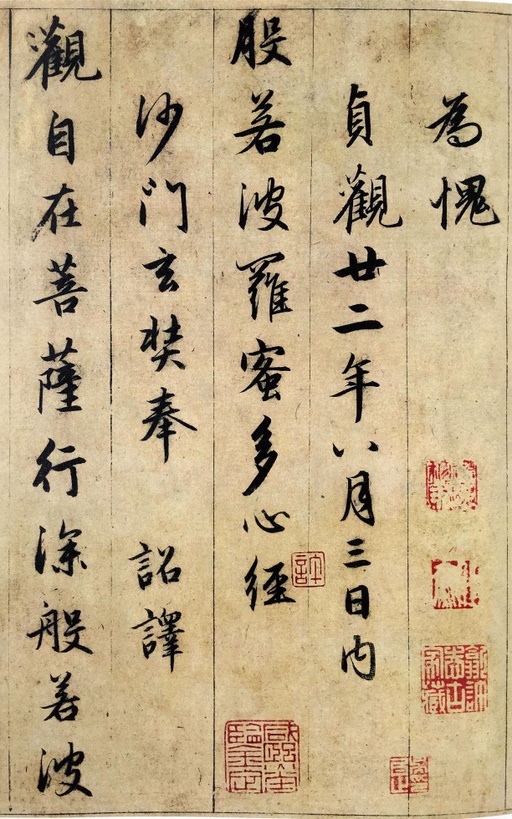 為愧
貞觀廿二年八月三日内
般若波羅蜜多心經
沙門玄奘奉 詔譯
觀自在菩薩行深般若波